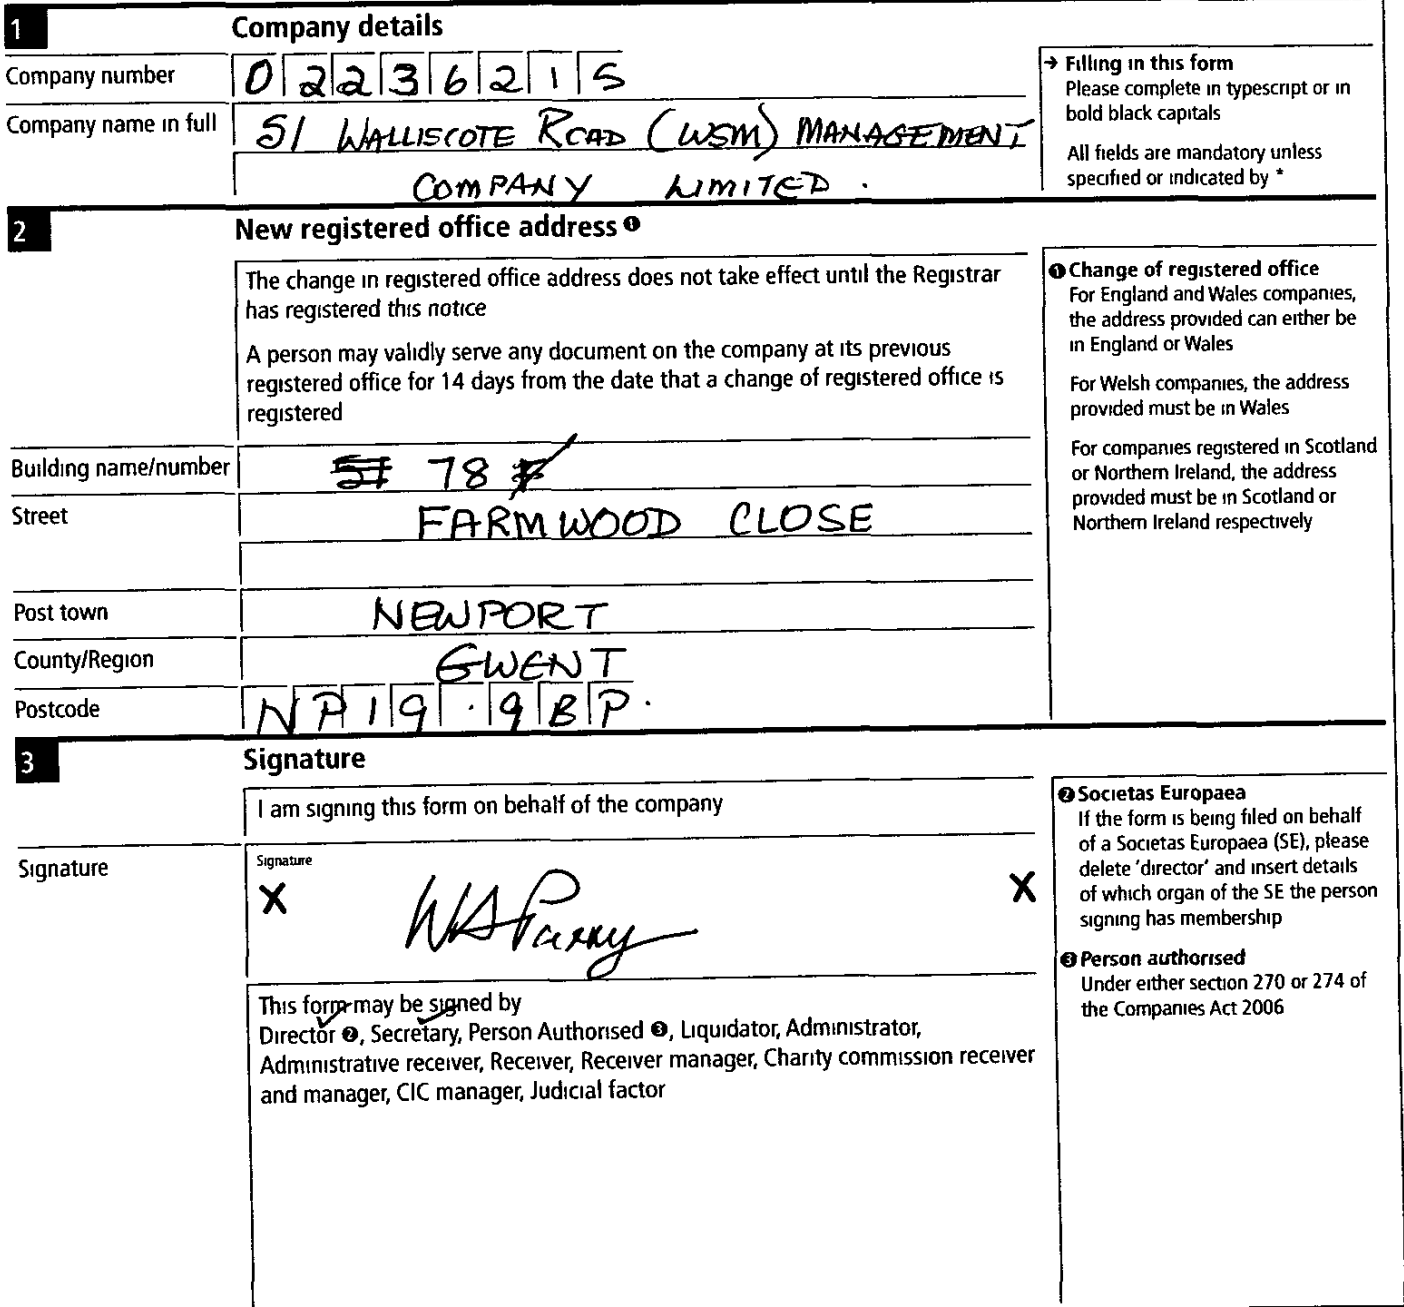 1 Company details
Company number 02236215
Company name in full 51 WALLISCOTE ROAD (WSM) MANAGEMENT
COMPANY LIMITED.
→ Filling in this form
Please complete in typescript or in
bold black capitals
All fields are mandatory unless
specified or indicated by *
2 New registered office address ❶
The change in registered office address does not take effect until the Registrar
has registered this notice
A person may validly serve any document on the company at its previous
registered office for 14 days from the date that a change of registered office is
registered
Building name/number 78
Street FARMWOOD CLOSE
Post town NEWPORT
County/Region GWENT
Postcode NP19 . 9BP.
❶ Change of registered office
For England and Wales companies,
the address provided can either be
in England or Wales
For Welsh companies, the address
provided must be in Wales
For companies registered in Scotland
or Northern Ireland, the address
provided must be in Scotland or
Northern Ireland respectively
3 Signature
I am signing this form on behalf of the company
Signature
Signature
X WAParry X
This form may be signed by
Director ❷, Secretary, Person Authorised ❸, Liquidator, Administrator,
Administrative receiver, Receiver, Receiver manager, Charity commission receiver
and manager, CIC manager, Judicial factor
❷ Societas Europaea
If the form is being filed on behalf
of a Societas Europaea (SE), please
delete 'director' and insert details
of which organ of the SE the person
signing has membership
❸ Person authorised
Under either section 270 or 274 of
the Companies Act 2006